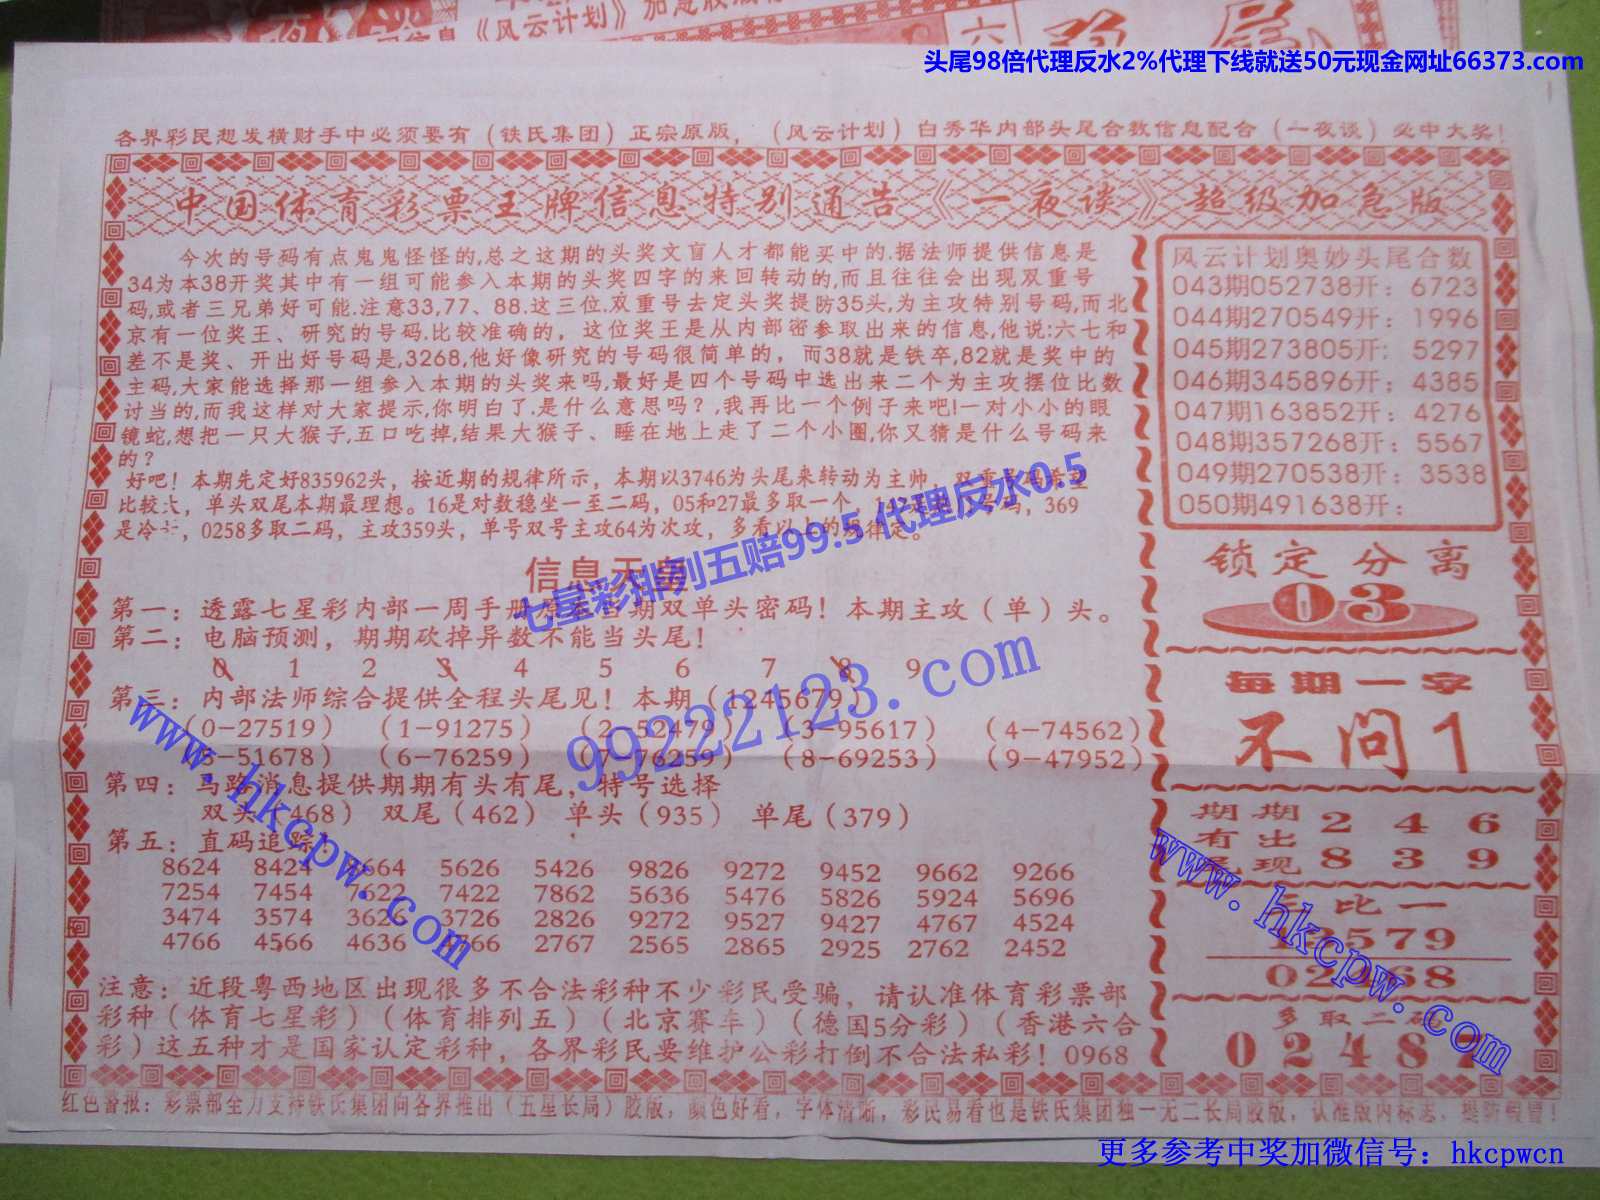 《风云计划》
六
头尾98倍代理反水2%代理下线就送50元现金网址66373.com
各界彩民想发横财手中必须要有（铁氏集团）正宗原版，（风云计划）白秀华内部头尾合数信息配合（一夜谈）必中大奖！
中国体育彩票王牌信息特别通告《一夜谈》超级加急版
今次的号码有点鬼鬼怪怪的,总之这期的头奖文盲人才都能买中的.据法师提供信息是
34为本38开奖其中有一组可能参入本期的头奖四字的来回转动的,而且往往会出现双重号
码,或者三兄弟好可能.注意33,77、88.这三位.双重号去定头奖提防35头,为主攻特别号码,而北
京有一位奖王、研究的号码.比较准确的，这位奖王是从内部密参取出来的信息,他说:六七和
差不是奖、开出好号码是,3268,他好像研究的号码很简单的，而38就是铁卒,82就是奖中的
主码,大家能选择那一组参入本期的头奖来吗,最好是四个号码中选出来二个为主攻摆位比数
讨当的,而我这样对大家提示,你明白了.是什么意思吗？,我再比一个例子来吧!一对小小的眼
镜蛇,想把一只大猴子,五口吃掉,结果大猴子、睡在地上走了二个小圈,你又猜是什么号码来
的？
好吧！本期先定好835962头，按近期的规律所示，本期以3746为头尾来转动为主帅，双重号码希望
比较大，单头双尾本期最理想。16是对数稳坐一至二码，05和27最多取一个，号码，369
是冷，0258多取二码，主攻359头，单号双号主攻64为次攻，多看以上的规律定。
信息天
第一：透露七星彩内部一周手册期双单头密码！本期主攻（单）头。
第二：电脑预测，期期砍掉异数不能当头尾！
0 1 2 3 4 5 6 7 8 9
第三：内部法师综合提供全程头尾见！本期（1245679）
（0-27519）（1-91275）（2-52479）（3-95617）（4-74562）
（5-51678）（6-76259）（7-76259）（8-69253）（9-47952）
第四：马路消息提供期期有头有尾，特号选择
双头（468） 双尾（462） 单头（935） 单尾（379）
第五：直码追踪：
8624 8424 664 5626 5426 9826 9272 9452 9662 9266
7254 7454 7622 7422 7862 5636 5476 5826 5924 5696
3474 3574 3626 3726 2826 9272 9527 9427 4767 4524
4766 4566 4636 4766 2767 2565 2865 2925 2762 2452
注意：近段粤西地区出现很多不合法彩种不少彩民受骗，请认准体育彩票部
彩种（体育七星彩）（体育排列五）（北京赛车）（德国5分彩）（香港六合
彩）这五种才是国家认定彩种，各界彩民要维护公彩打倒不合法私彩！0968
风云计划奥妙头尾合数
043期052738开：6723
044期270549开：1996
045期273805开：5297
046期345896开：4385
047期163852开：4276
048期357268开：5567
049期270538开：3538
050期491638开：
锁定分离
03
每期一字
不问1
期期 2 4 6
有出
尾现 8 3 9
三比一
13579
02468
多取二码
02487
红色警报：彩票部全力支持铁氏集团向各界推出（五星长局）胶版，颜色好看，字体清晰，彩民易看也是铁氏集团独一无二长局胶版，认准版内标志，提防假冒！
七星彩排列五赔99.5 代理反水0.5
99222123.com
www.hkcpw.com
www.hkcpw.com
更多参考中奖加微信号：hkcpwcn